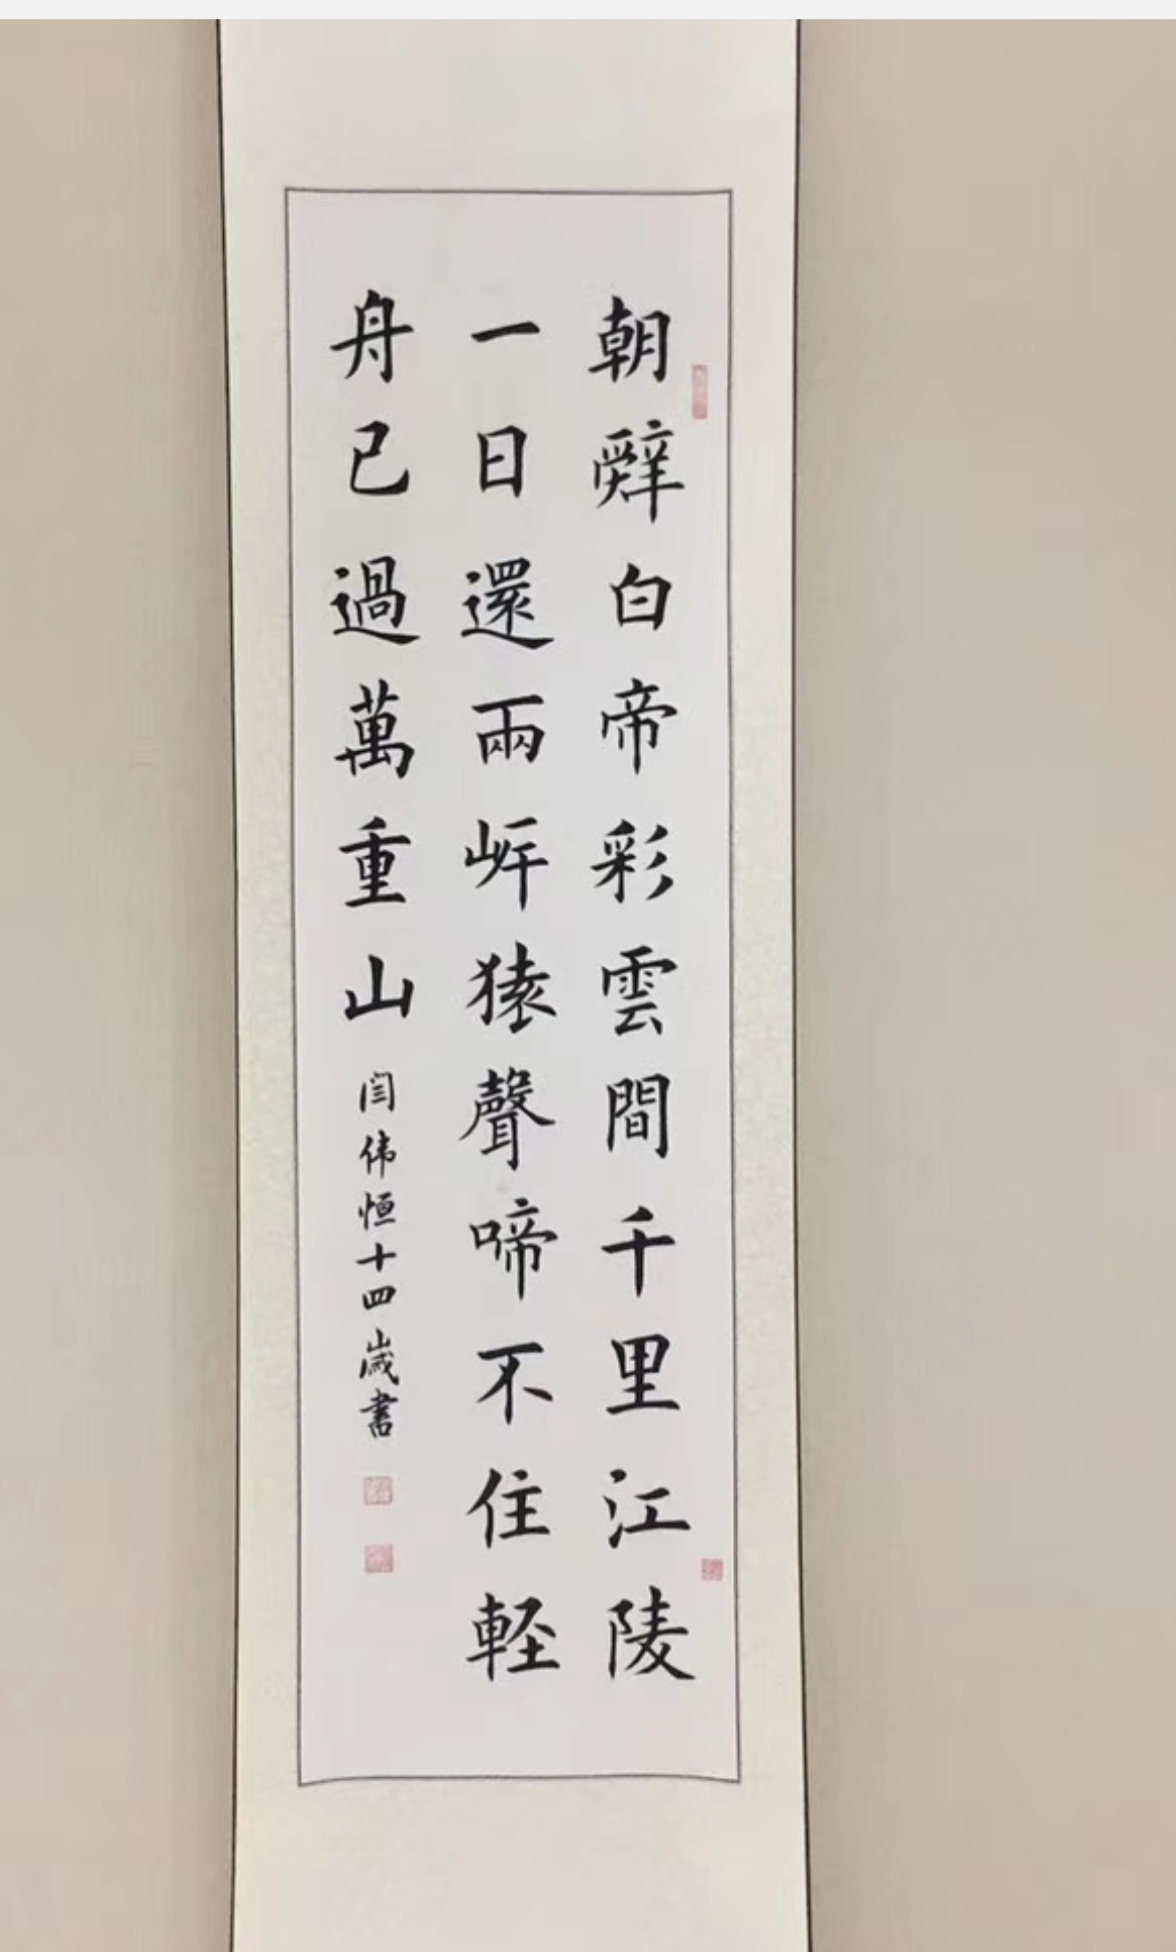 朝辤白帝彩雲間千里江陵
一日還兩岓猿聲啼不住軽
舟已過萬重山 闫伟恒十四歲書